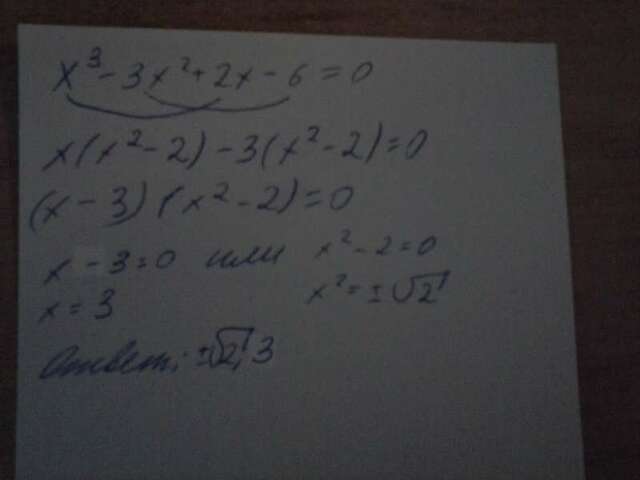 x³ - 3x² + 2x - 6 = 0
x(x² - 2) - 3(x² - 2) = 0
(x - 3)(x² - 2) = 0
x - 3 = 0 или x² - 2 = 0
x = 3 x² = ±√2
Ответ: ±√2, 3